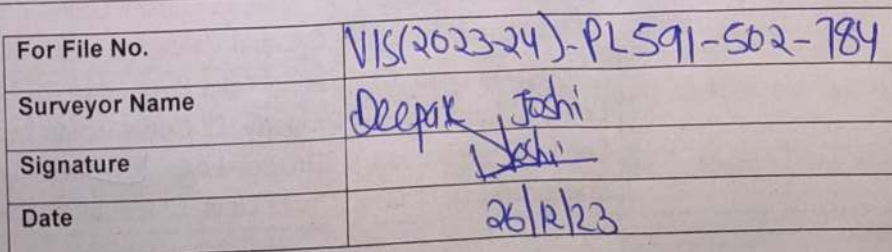 For File No. VIS(2023-24)-PL591-502-784
Surveyor Name Deepak Joshi
Signature Joshi
Date 26/12/23